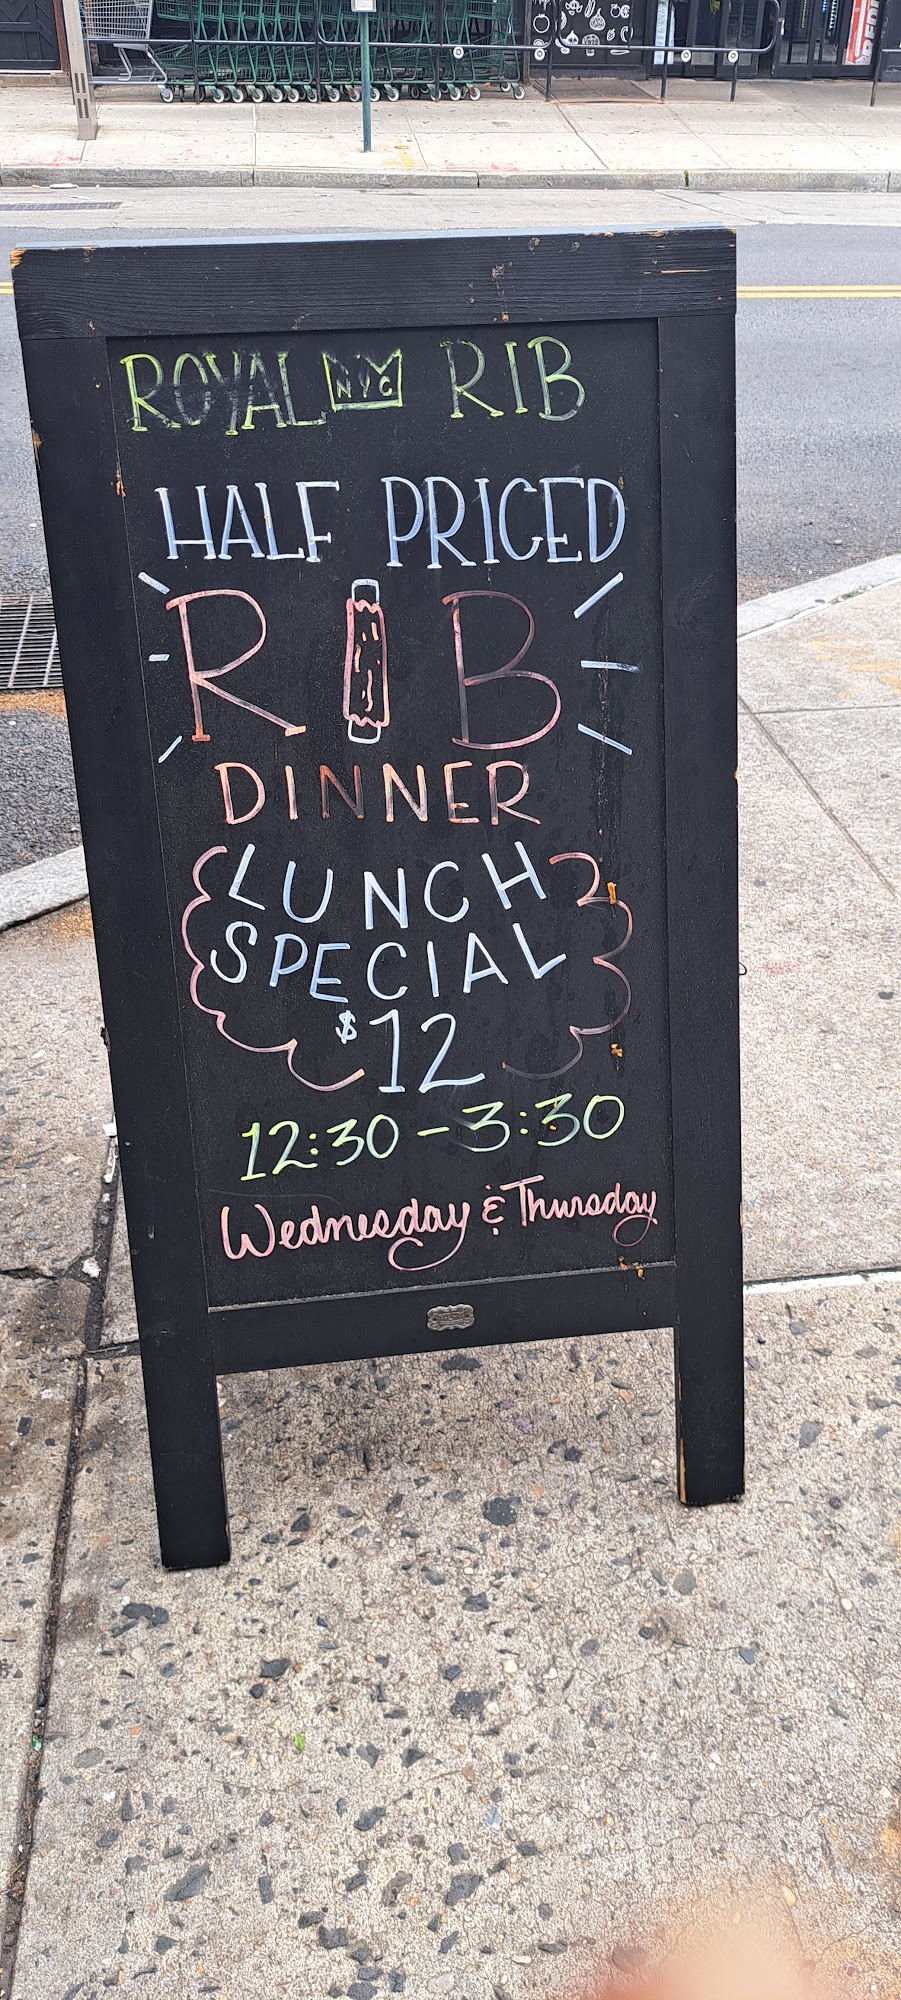 ROYAL NYC RIB
HALF PRICED
RIB
DINNER
LUNCH
SPECIAL
$12
12:30 - 3:30
Wednesday & Thursday